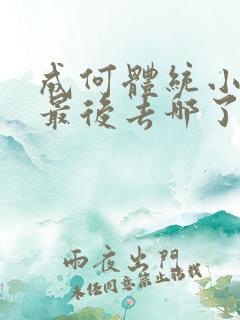 成何體統小
最後去哪了
雨夜出門
未經同意禁止轉載